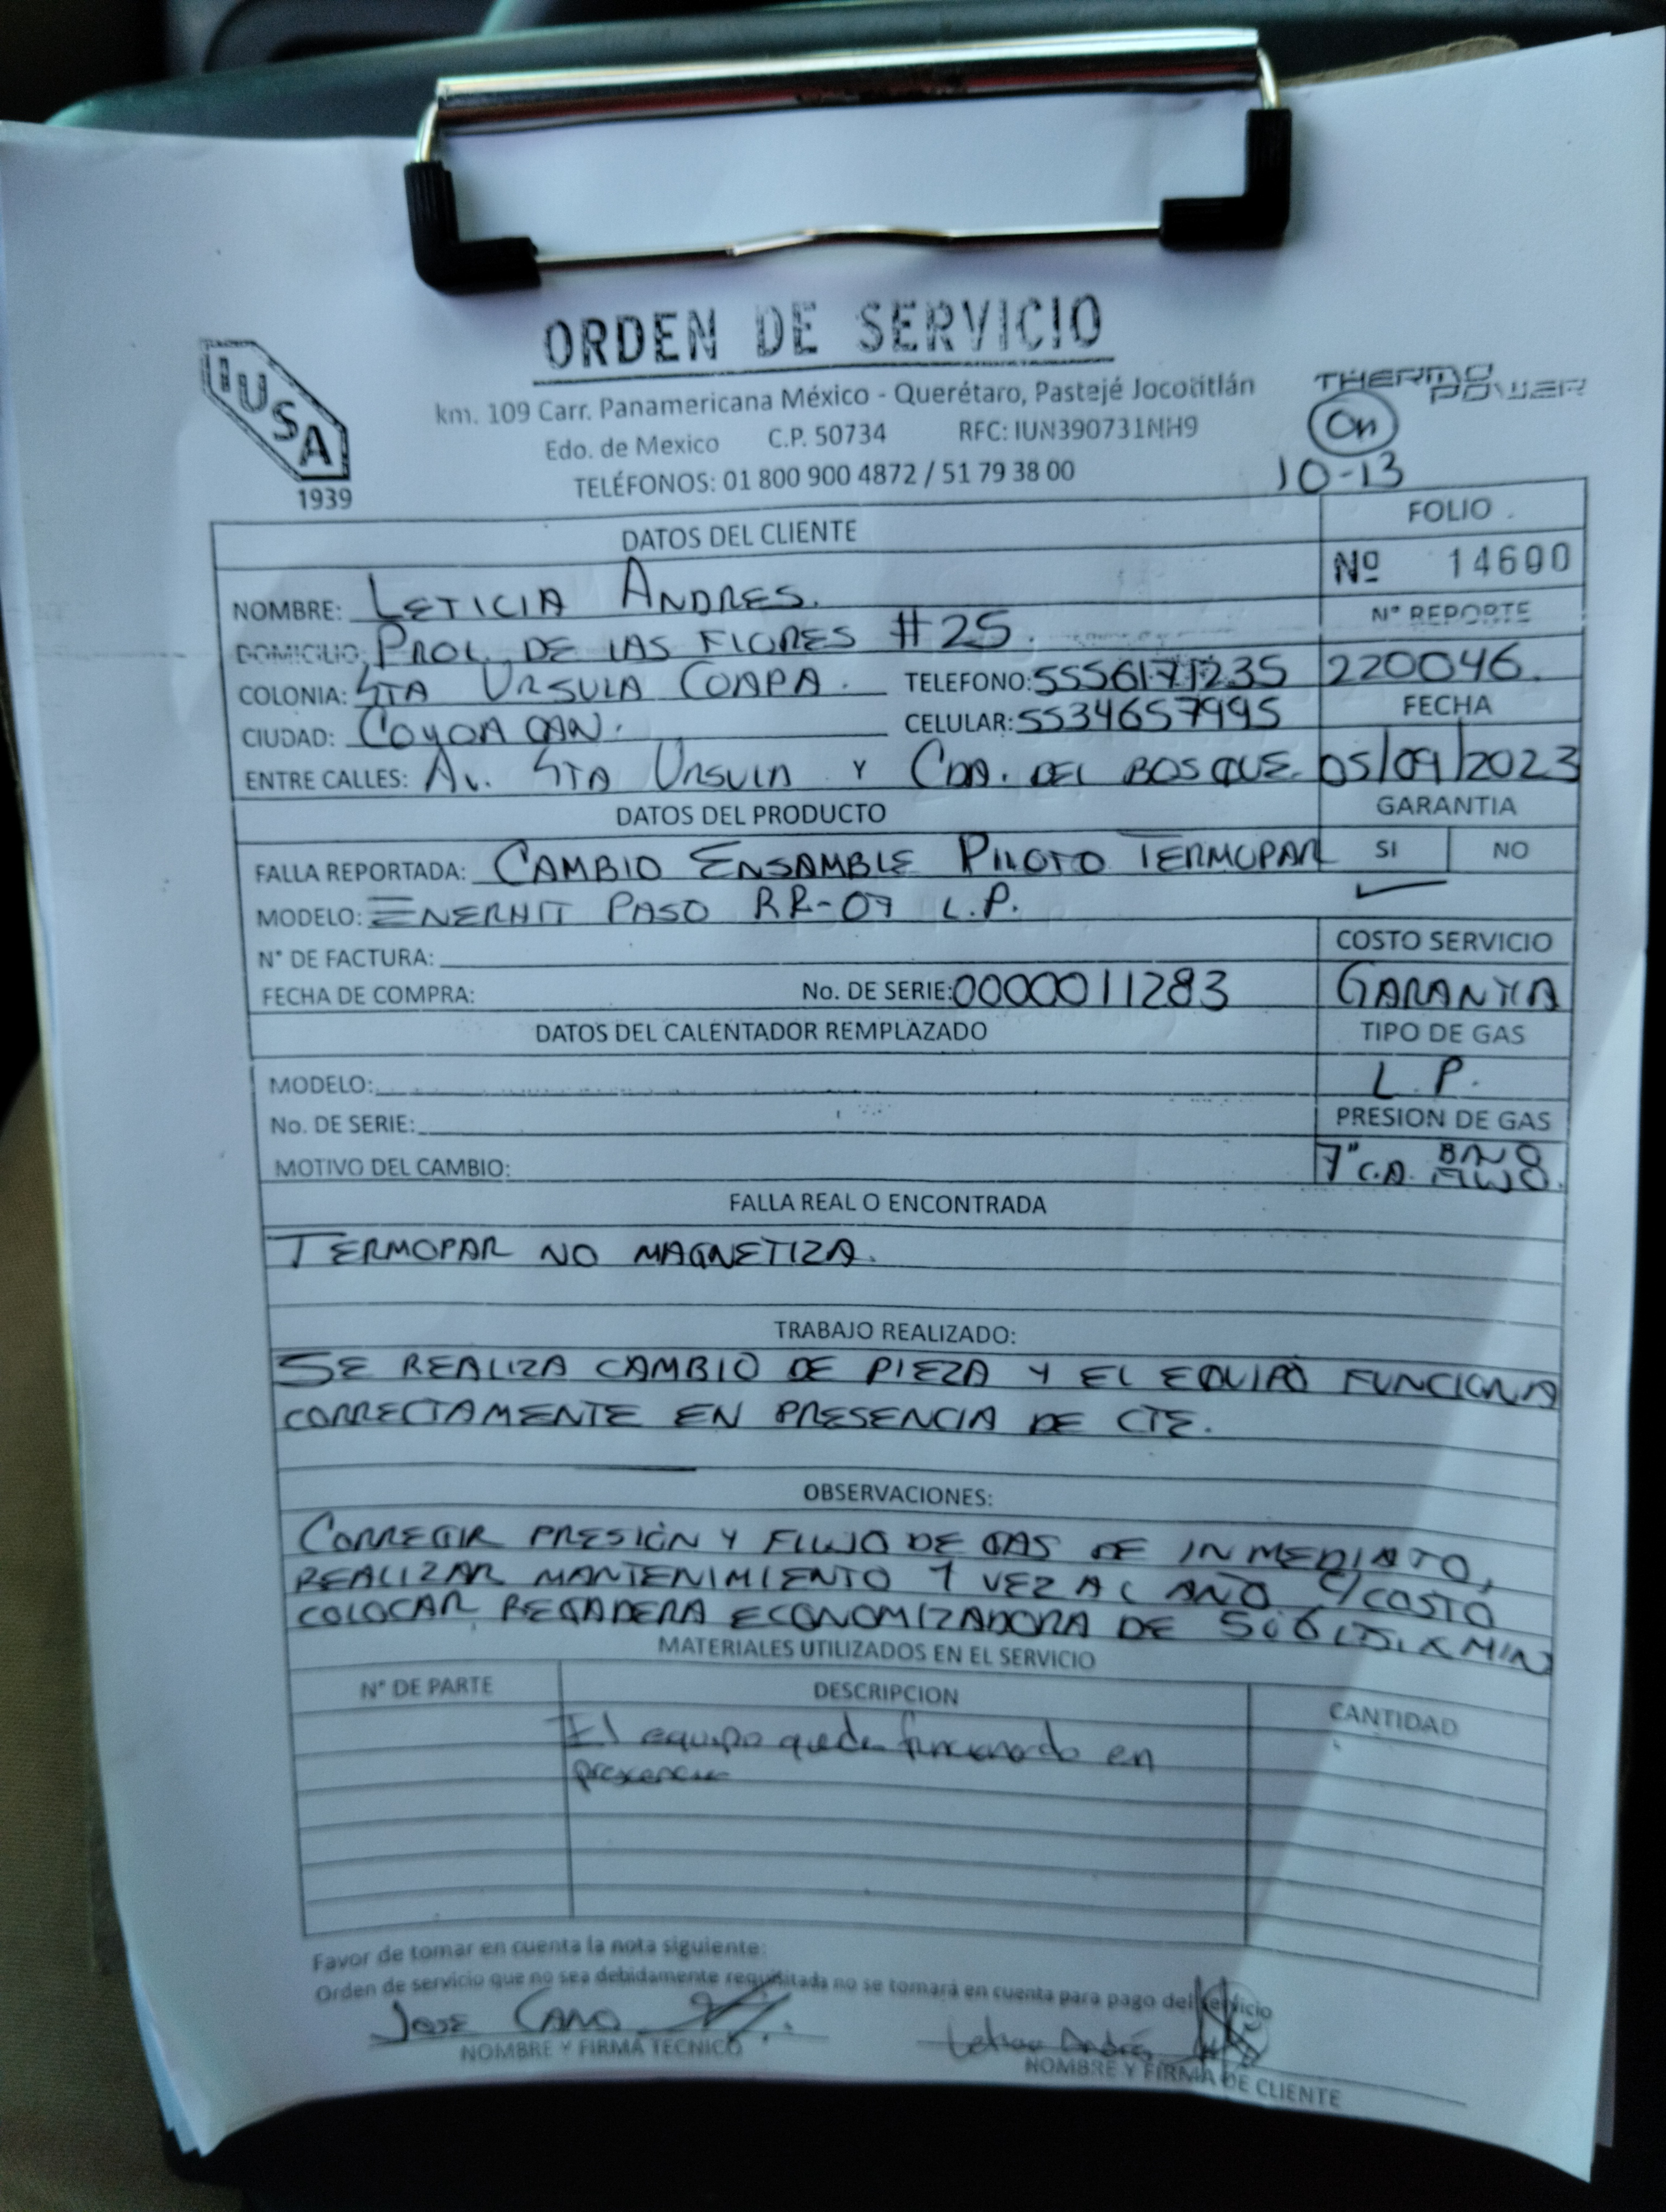 ORDEN DE SERVICIO
IUSA
1939
km. 109 Carr. Panamericana México - Querétaro, Pastejé Jocotitlán
Edo. de Mexico C.P. 50734 RFC: IUN390731NH9
TELÉFONOS: 01 800 900 4872 / 51 79 38 00
THERMO POWER
On
10-13
DATOS DEL CLIENTE
FOLIO
Nº 14600
NOMBRE: LETICIA ANDRES.
N° REPORTE
DOMICILIO: PROL. DE LAS FLORES #25.
220046.
COLONIA: STA URSULA COAPA. TELEFONO: 5556171235
FECHA
CIUDAD: COYOACAN. CELULAR: 5534657995
ENTRE CALLES: AV. STA URSULA Y CDA. DEL BOSQUE. 05/09/2023
DATOS DEL PRODUCTO
GARANTIA
FALLA REPORTADA: CAMBIO ENSAMBLE PILOTO TERMOPAR
SI NO
MODELO: ENERHIT PASO RR-07 L.P.
N° DE FACTURA:
COSTO SERVICIO
FECHA DE COMPRA: No. DE SERIE: 0000011283
GARANTIA
DATOS DEL CALENTADOR REMPLAZADO
TIPO DE GAS
MODELO:
L.P.
No. DE SERIE:
PRESION DE GAS
MOTIVO DEL CAMBIO:
7" C.A. FLUJO
FALLA REAL O ENCONTRADA
TERMOPAR NO MAGNETIZA.
TRABAJO REALIZADO:
SE REALIZA CAMBIO DE PIEZA Y EL EQUIPO FUNCIONA
CORRECTAMENTE EN PRESENCIA DE CTE.
OBSERVACIONES:
CORREGIR PRESIÓN Y FLUJO DE GAS DE INMEDIATO,
REALIZAR MANTENIMIENTO 1 VEZ AL AÑO C/COSTO
COLOCAR REGADERA ECONOMIZADORA DE 5 ó 6 LTS. X MIN
MATERIALES UTILIZADOS EN EL SERVICIO
N° DE PARTE DESCRIPCION CANTIDAD
El equipo queda funcionado en
presencia
Favor de tomar en cuenta la nota siguiente:
Orden de servicio que no sea debidamente requisitada no se tomará en cuenta para pago del servicio
JOSE CANO
NOMBRE Y FIRMA TECNICO
Leticia Andrés
NOMBRE Y FIRMA DE CLIENTE